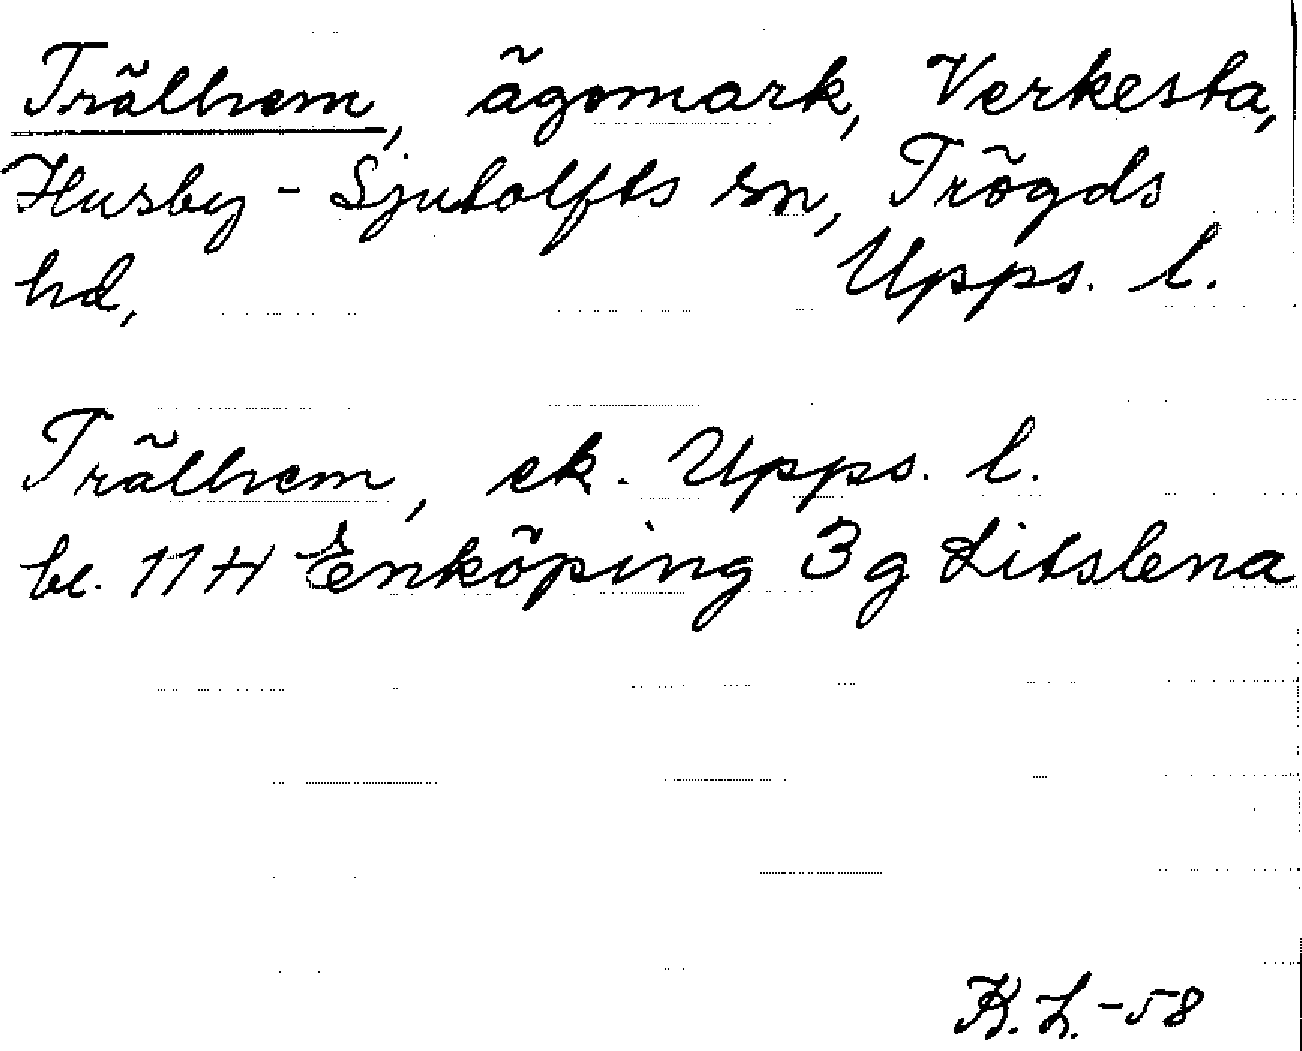 Trälhem, ägomark, Verkesta,
Husby-Sjutolfts sn, Trögds
hd, Upps. l.
Trälhem, ek. Upps. l.
bl. 11 H Enköping 3 g Litslena
K. L. -58